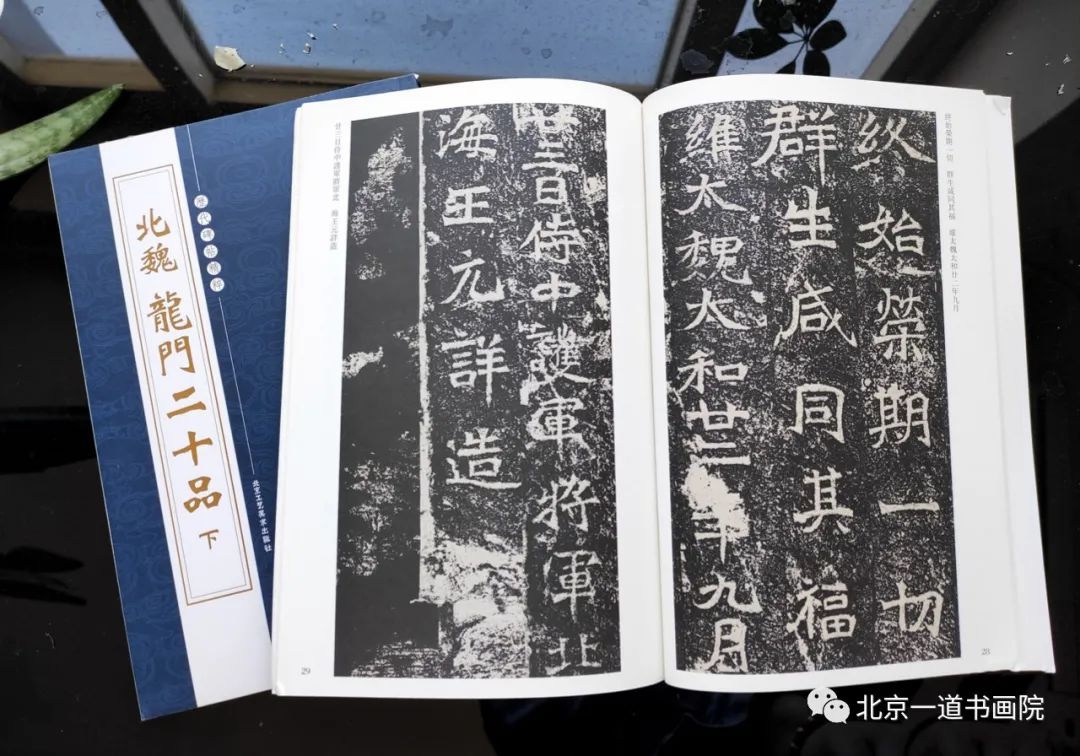 歷代碑帖精粹
北魏 龍門二十品 下
北京工艺美术出版社
終始榮期一切 群生咸同其福 維太魏太和廿二年九月
终始榮期一切
群生咸同其福
維太魏太和廿二年九月
28
廿三日侍中護軍將軍北 海王元詳造
廿三日侍中護軍將軍北
海王元詳造
29
北京一道书画院